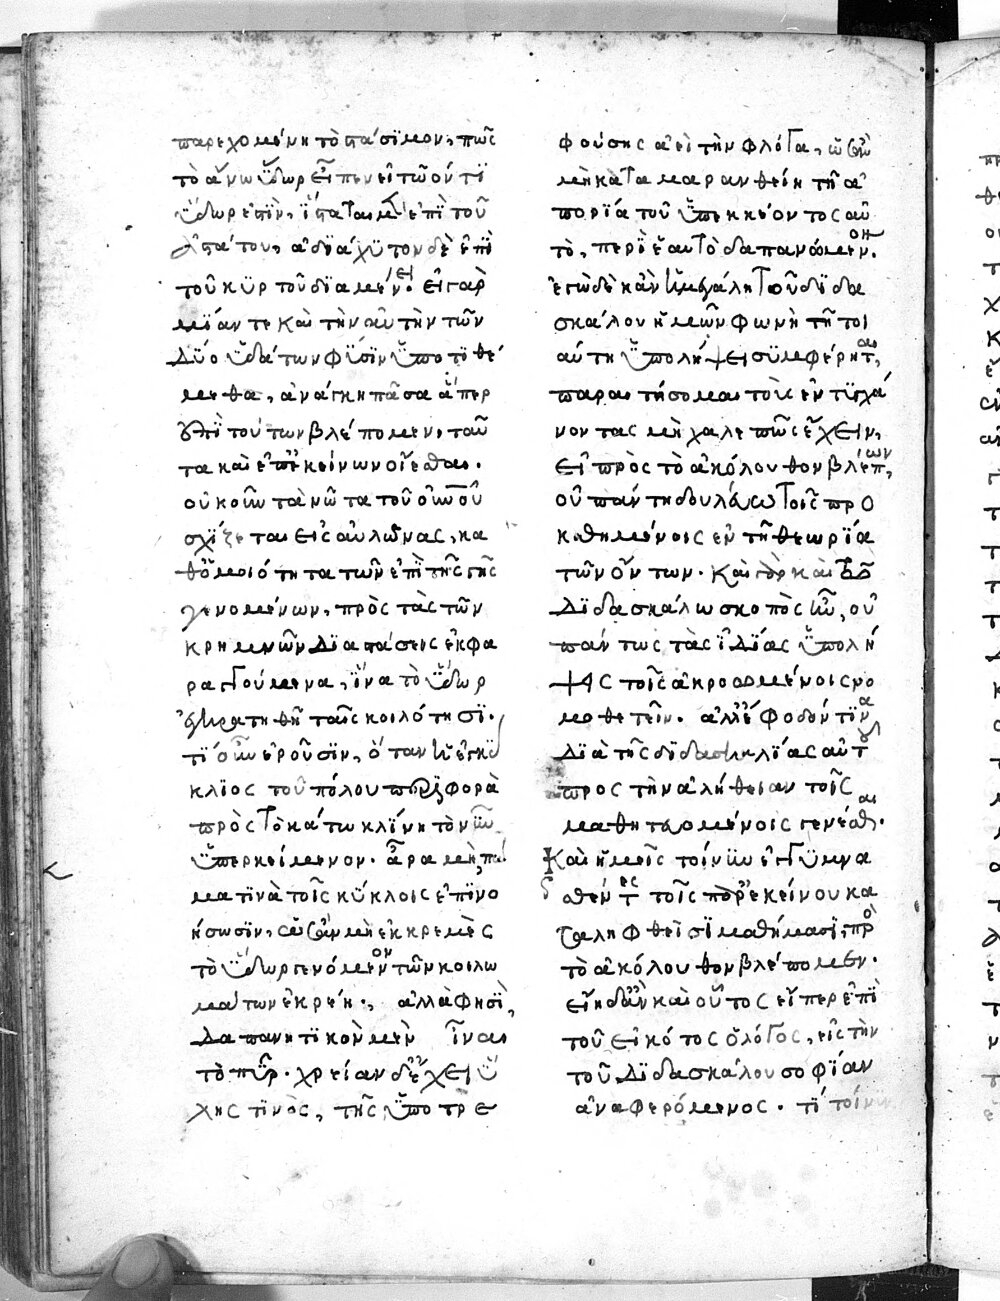 παρεχομένη τὸ πάσιμον, πῶς
τὸ ἄνω ὕδωρ εἶπεν εἰ τῶ ὄντι
ὕδωρ ἐστὶν, ἵπταται μὲν ἐπὶ τοῦ
ἀδιάχυτον δὲ ἐπὶ
τοῦ κυρτοῦ διαμένει. εἰ γὰρ
μίαν τε καὶ τὴν αὐτὴν τῶν
δύο ὑδάτων φύσιν ὑποτιθέ
μεθα, ἀνάγκη πᾶσα ἅπερ
ἐπὶ τούτων βλέπομεν, ταῦ
τα καὶ ἐπ' ἐκείνων οἴεσθαι.
οὐκοῦν τὰ νῶτα τοῦ οὐνοῦ
σχίζεται εἰς αὐλῶνας, κα
θ' ὁμοιότητα τῶν ἐπὶ τῆς γῆς
γενομένων, πρὸς τὰς τῶν
κρημνῶν διαστάσεις ἐκφα
ραγγούμενα, ἵνα τὸ ὕδωρ
ἐγκρατηθῆ ταῖς κοιλότησι.
τί οὖν ἐροῦσιν, ὅταν ἡ ἐγκύ
κλιος τοῦ πόλου περιφορὰ
πρὸς τὸ κάτω κλίνη τὸ νῦν
ὑπερκείμενον. ἆρα μὴ πώ
ματινὰ τοῖς κύκλοις ἐπινο
ήσωσιν, ὡς ἂν μὴ ἐκκρεμὲς
τὸ ὕδωρ γενόμενον τῶν κοιλω
μάτων ἐκρέη., ἀλλὰ φησὶ,
δαπανητικὸν μὲν εἶναι
τὸ πῦρ. χρείαν δὲ ἔχει ὕ
λης τινὸς, τῆς ὑποτρε
φούσης ἀεὶ τὴν φλόγα, ὡς ἂν
μὴ καταμαρανθείη τῆ ἀ
πορία τοῦ ὑπεκκέοντος αὐ
τὸ, περὶ ἑαυτὸ δαπανώμενον.
ἐγὼ δὲ κἂν ἡ μεγάλη τοῦ διδα
σκάλου ἡμῶν φωνὴ τῆ τοι
αύτη ὑπολήψει συμφέρηται,
παραιτήσομαι τοὺς ἐντυγχά
νοντας μὴ χαλεπῶς ἔχειν,
εἰ πρὸς τὸ ἀκόλουθον βλέπων,
οὐ πάντη δουλεύω τοῖς προ
καθημένοις ἐν τῆ θεωρία
τῶν ὄντων. καὶ γὰρ καὶ τῶ
διδασκάλω σκοπὸς ἦν, οὐ
πάντως τὰς ἰδίας ὑπολή
ψεις τοῖς ἀκροωμένοις νο
μοθετεῖν. ἀλλ' ἔφοδόν τινα
διὰ τῆς διδασκαλίας αὐτοῦ
πρὸς τὴν ἀλήθειαν τοῖς
μαθητευομένοις γενέσθαι.
Καὶ ἡμεῖς τοίνυν ἐγγυμνα
σθέντες τοῖς παρ' ἐκείνου κα
ταληφθεῖσι μαθήμασι πρὸς
τὸ ἀκόλουθον βλέπομεν.
εἴη δ' ἂν καὶ οὗτος εἴπερ ἐπὶ
τοῦ εἰκότος ὁ λόγος, εἰς τὴν
τοῦ διδασκάλου σοφίαν
ἀναφερόμενος. τί τοίνυν